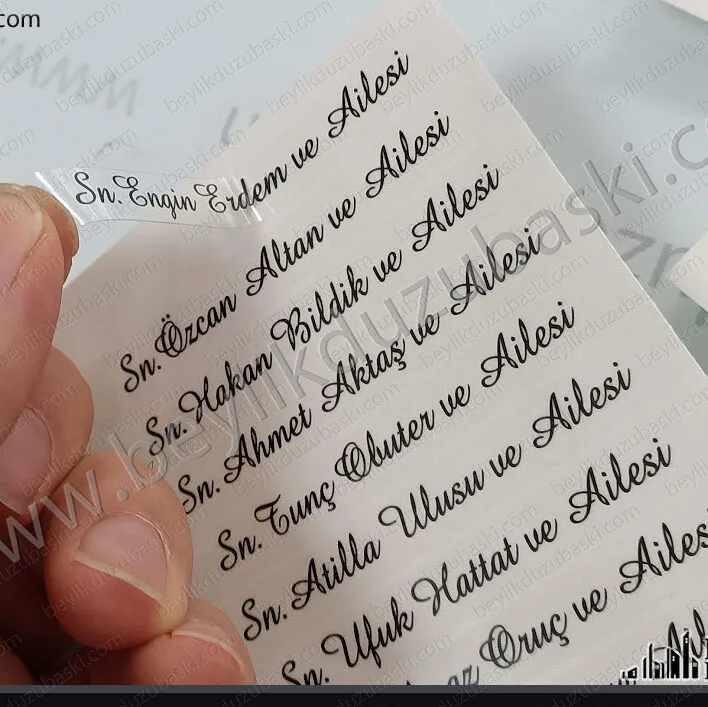 com
Sn. Engin Erdem ve Ailesi
Sn. Özcan Altan ve Ailesi
Sn. Hakan Bildik ve Ailesi
Sn. Ahmet Aktaş ve Ailesi
Sn. Tunç Obuter ve Ailesi
Sn. Atilla Ulusu ve Ailesi
Sn. Ufuk Hattat ve Ailesi
Oruç ve Ailesi
www.beylikduzubaski.com
beylikduzubaski.com